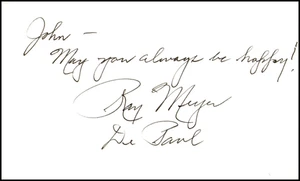 John —
May you always be happy!
Ray Meyer
De Paul